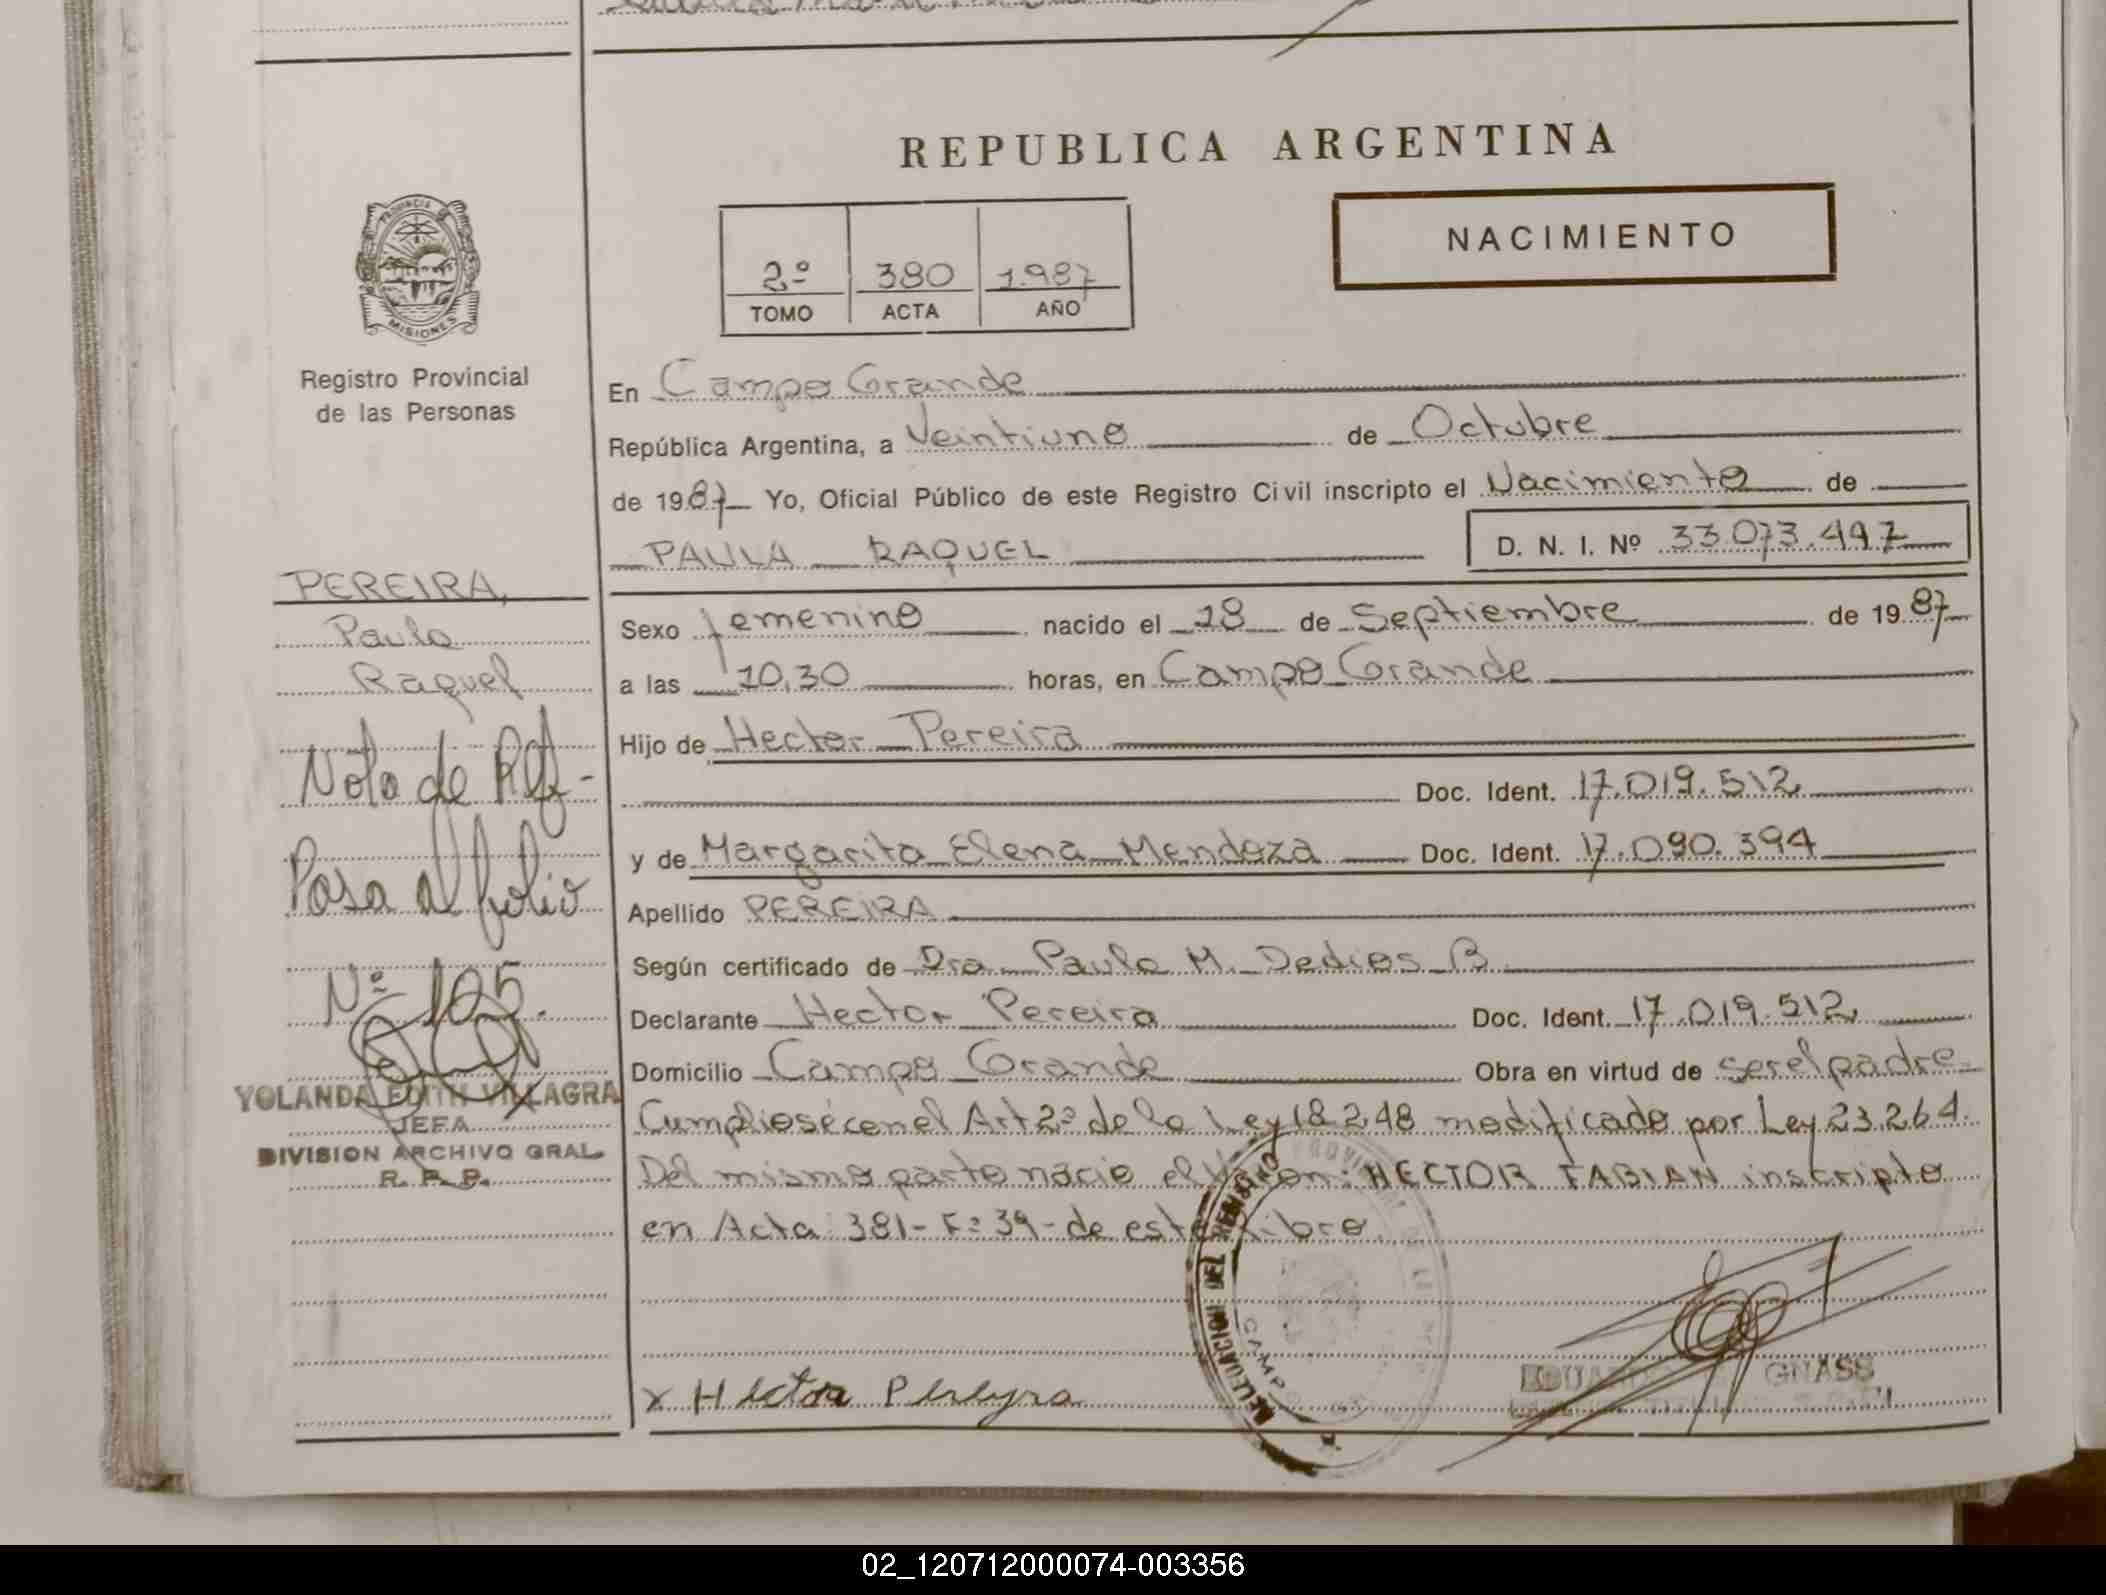 REPUBLICA ARGENTINA
NACIMIENTO
2º 380 1.987
TOMO ACTA AÑO
PROVINCIA
MISIONES
Registro Provincial
de las Personas
En Campo Grande
República Argentina, a Veintiuno de Octubre
de 1987 Yo, Oficial Público de este Registro Civil inscripto el Nacimiento de
PAULA RAQUEL D. N. I. Nº 33.073.497
PEREIRA,
Paula
Raquel
Nota de Ref-
Pasa al folio
Nº 105.
YOLANDA EDITH VILLAGRA
JEFA
DIVISION ARCHIVO GRAL.
R. P. P.
Sexo femenino nacido el 28 de Septiembre de 1987
a las 10,30 horas, en Campo Grande
Hijo de Hector Pereira
Doc. Ident. 17.019.512
y de Margarita Elena Mendoza Doc. Ident. 17.090.394
Apellido PEREIRA
Según certificado de Dra Paula M. Dedios B.
Declarante Hector Pereira Doc. Ident. 17.019.512
Domicilio Campo Grande Obra en virtud de ser el padre
Cumpliose con el Art 2º de la Ley 18.248 modificado por Ley 23.264.
Del mismo parto nacio el Varon: HECTOR FABIAN inscripto
en Acta 381- Fº 39- de este Libro.
x Hector Pereyra
DEL REGISTRO PROVINCIAL DE
GNASS
02_120712000074-003356